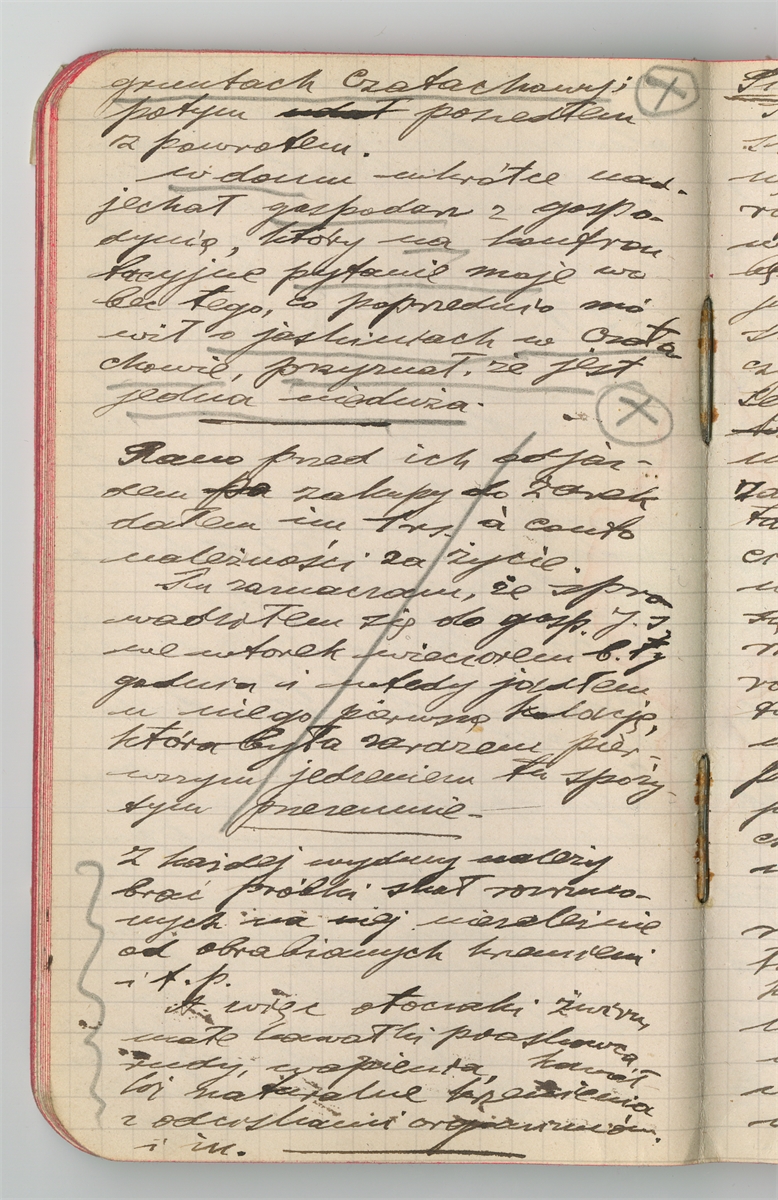 gruntach Czatachowej;
potym udał poszedłem
z powrotem.
W domu wkrótce nad-
jechał gospodarz z gospo-
dynią, który na konfron
tacyjne pytanie moje wo
bec tego, co poprzednio mó
wił o jaskiniach w Czata-
chowie, przyznał, że jest
jedna nieduża.
Rano przed ich odjaz-
dem po zakupy do Żarek
dałem im à conto
należności za życie.
Tu zaznaczam, że spro
wadziłem się do gosp. J. S.
we wtorek wieczorem b. ty
godnia i wtedy jadłem
u niego pierwszą kolację,
która była zarazem pier-
wszym jedzeniem tu spoży-
tym przezemnie-
Z każdej wydmy należy
brać próbki skał rozrzuco-
nych na niej niezależnie
od obrabianych krzemieni
i t.p.
A więc otoczaki żwiru,
małe kawałki piaskowca
rudy, wapienia, kawał
ki naturalne krzemienia
z odciskami organizmów.
i in.